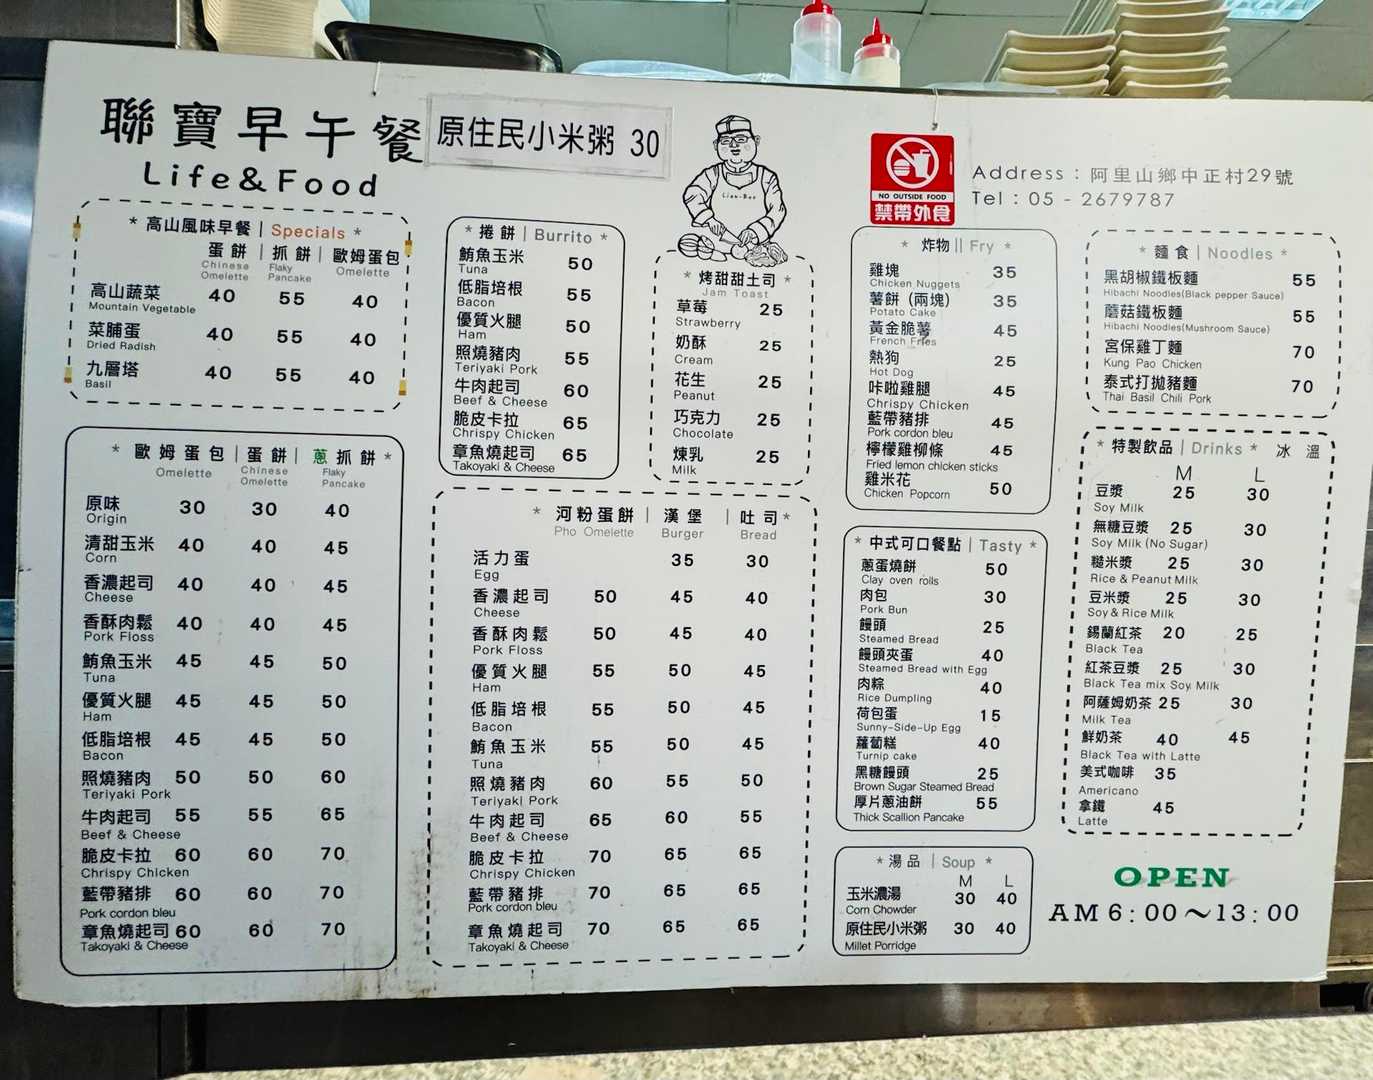 聯寶早午餐
Life&Food
原住民小米粥 30
Lian-Bao
NO OUTSIDE FOOD
禁帶外食
Address：阿里山鄉中正村29號
Tel：05 - 2679787
* 高山風味早餐 | Specials *
蛋餅 | 抓餅 | 歐姆蛋包
Chinese Omelette Flaky Pancake Omelette
高山蔬菜 40 55 40
Mountain Vegetable
菜脯蛋 40 55 40
Dried Radish
九層塔 40 55 40
Basil
* 歐姆蛋包 | 蛋餅 | 蔥抓餅 *
Omelette Chinese Omelette Flaky Pancake
原味 30 30 40
Origin
清甜玉米 40 40 45
Corn
香濃起司 40 40 45
Cheese
香酥肉鬆 40 40 45
Pork Floss
鮪魚玉米 45 45 50
Tuna
優質火腿 45 45 50
Ham
低脂培根 45 45 50
Bacon
照燒豬肉 50 50 60
Teriyaki Pork
牛肉起司 55 55 65
Beef & Cheese
脆皮卡拉 60 60 70
Chrispy Chicken
藍帶豬排 60 60 70
Pork cordon bleu
章魚燒起司 60 60 70
Takoyaki & Cheese
* 捲餅 | Burrito *
鮪魚玉米 50
Tuna
低脂培根 55
Bacon
優質火腿 50
Ham
照燒豬肉 55
Teriyaki Pork
牛肉起司 60
Beef & Cheese
脆皮卡拉 65
Chrispy Chicken
章魚燒起司 65
Takoyaki & Cheese
* 烤甜甜土司 *
Jam Toast
草莓 25
Strawberry
奶酥 25
Cream
花生 25
Peanut
巧克力 25
Chocolate
煉乳 25
Milk
* 河粉蛋餅 | 漢堡 | 吐司 *
Pho Omelette Burger Bread
活力蛋 35 30
Egg
香濃起司 50 45 40
Cheese
香酥肉鬆 50 45 40
Pork Floss
優質火腿 55 50 45
Ham
低脂培根 55 50 45
Bacon
鮪魚玉米 55 50 45
Tuna
照燒豬肉 60 55 50
Teriyaki Pork
牛肉起司 65 60 55
Beef & Cheese
脆皮卡拉 70 65 65
Chrispy Chicken
藍帶豬排 70 65 65
Pork cordon bleu
章魚燒起司 70 65 65
Takoyaki & Cheese
* 炸物 || Fry *
雞塊 35
Chicken Nuggets
薯餅（兩塊） 35
Potato Cake
黃金脆薯 45
French Fries
熱狗 25
Hot Dog
咔啦雞腿 45
Chrispy Chicken
藍帶豬排 45
Pork cordon bleu
檸檬雞柳條 45
Fried lemon chicken sticks
雞米花 50
Chicken Popcorn
* 中式可口餐點 | Tasty *
蔥蛋燒餅 50
Clay oven rolls
肉包 30
Pork Bun
饅頭 25
Steamed Bread
饅頭夾蛋 40
Steamed Bread with Egg
肉粽 40
Rice Dumpling
荷包蛋 15
Sunny-Side-Up Egg
蘿蔔糕 40
Turnip cake
黑糖饅頭 25
Brown Sugar Steamed Bread
厚片蔥油餅 55
Thick Scallion Pancake
* 湯品 | Soup *
M L
玉米濃湯 30 40
Corn Chowder
原住民小米粥 30 40
Millet Porridge
* 麵食 | Noodles *
黑胡椒鐵板麵 55
Hibachi Noodles(Black pepper Sauce)
蘑菇鐵板麵 55
Hibachi Noodles(Mushroom Sauce)
宮保雞丁麵 70
Kung Pao Chicken
泰式打拋豬麵 70
Thai Basil Chili Pork
* 特製飲品 | Drinks * 冰 溫
M L
豆漿 25 30
Soy Milk
無糖豆漿 25 30
Soy Milk (No Sugar)
糙米漿 25 30
Rice & Peanut Milk
豆米漿 25 30
Soy & Rice Milk
錫蘭紅茶 20 25
Black Tea
紅茶豆漿 25 30
Black Tea mix Soy Milk
阿薩姆奶茶 25 30
Milk Tea
鮮奶茶 40 45
Black Tea with Latte
美式咖啡 35
Americano
拿鐵 45
Latte
OPEN
AM 6：00～13：00